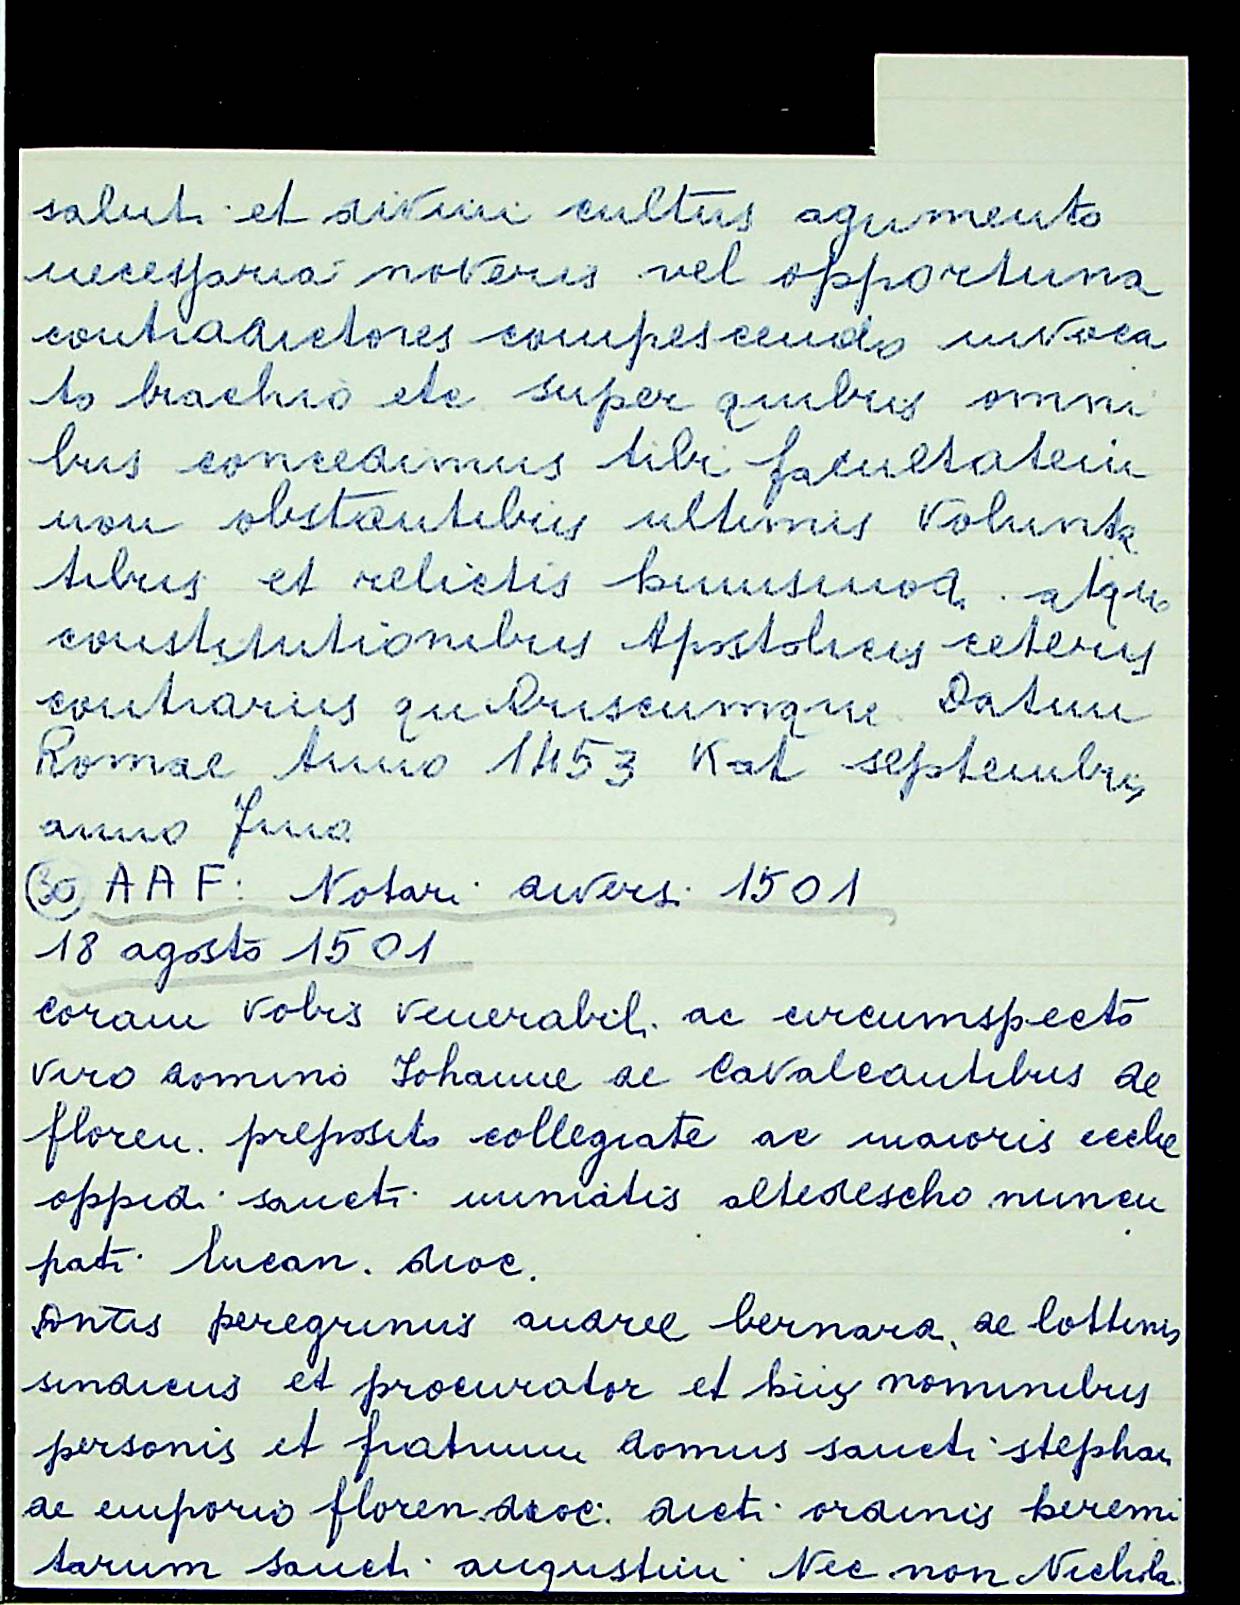 saluti et divini cultus agumento
necessaria noveris vel opportuna
contradictores compescendo invoca
to brachio etc super quibus omni
bus concedimus tibi facultatem
non obstantibus ultimis volunta
tibus et relictis huiusmod. atque
constitutionibus Apostolicis ceteris
contrariis quibuscumque. Datum
Romae Anno 1453 Kal septembris
anno
(30) AAF: Notari diversi 1501
18 agosto 1501
coram vobis venerabili ac circumspecto
viro domino Iohanne de Cavalcantibus de
floren. preposito collegiate ac maioris eccle
oppidi sancti miniatis altedescho nuncu
pati lucan. dioc.
peregrinus andree bernard. de lottinis
sindicus et procurator et hiis nominibus
personis et fratrum domus sancti stephan
de emporio floren. dioc. dicti ordinis heremi
tarum sancti augustini Nec non Nichola